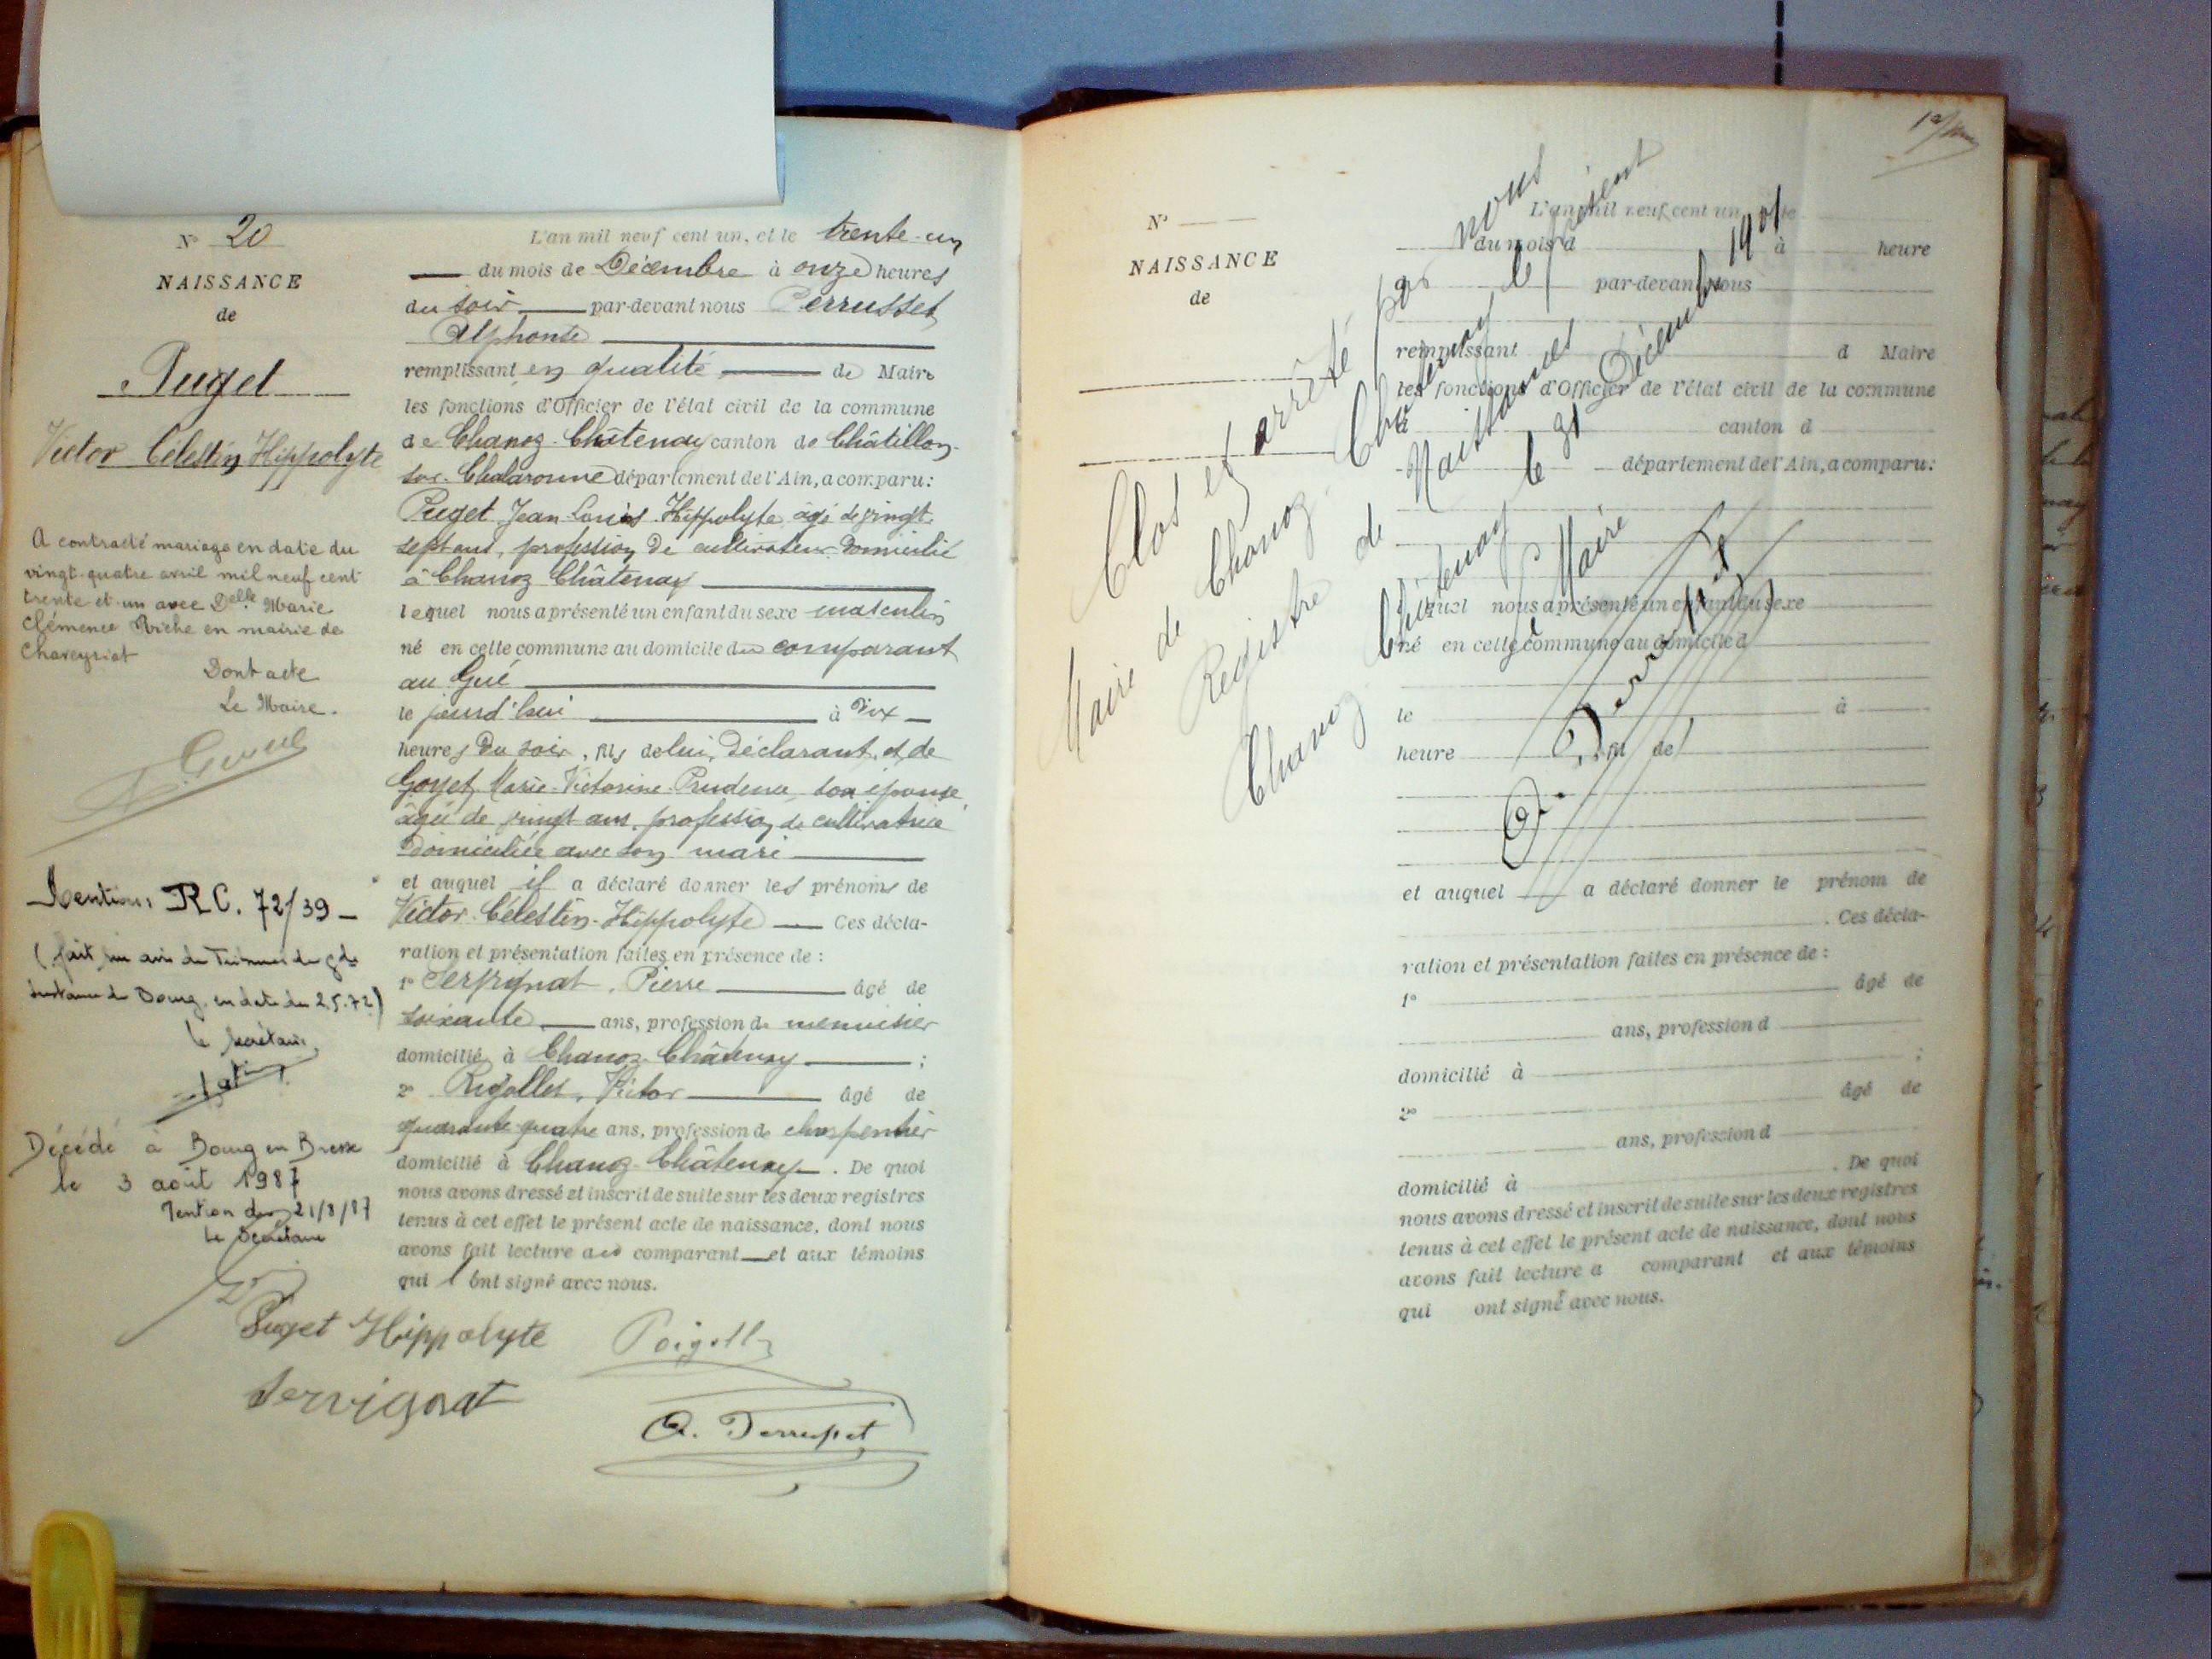 N° 20
NAISSANCE
de
Puget
Victor Célestin Hippolyte
A contracté mariage en date du
vingt-quatre avril mil neuf cent
trente et un avec Delle Marie
Clémence Riche en mairie de
Chaveyriat
Dont acte
Le Maire.
Mention: R.C. 72/39 -
en date du 2.5.72)
le secrétaire,
Décédé à Bourg en Bresse
le 3 août 1987
Mention du 21/8/87
Le Secrétaire
L'an mil neuf cent un, et le trente-un
du mois de Décembre à onze heures
du soir par-devant nous Perrusset
Alphonse
remplissant en qualité de Maire
les fonctions d'Officier de l'état civil de la commune
de Chanoz-Châtenay canton de Châtillon-
sur-Chalaronne département de l'Ain, a comparu:
Puget Jean Louis Hippolyte âgé de vingt-
sept ans, profession de cultivateur domicilié
à Chanoz Châtenay
lequel nous a présenté un enfant du sexe masculin
né en cette commune au domicile du comparant
au Gué
le jourd'hui à dix
heures du soir, fils de lui, déclarant, et de
Goyet, Marie-Victorine-Prudence, son épouse,
âgée de vingt ans, profession de cultivatrice
domiciliée avec son mari
et auquel il a déclaré donner les prénoms de
Victor-Célestin-Hippolyte Ces décla-
ration et présentation faites en présence de :
1° Servignat, Pierre âgé de
soixante ans, profession de menuisier
domicilié à Chanoz-Châtenay ;
2° Rigollet, Victor âgé de
quarante quatre ans, profession de charpentier
domicilié à Chanoz-Châtenay. De quoi
nous avons dressé et inscrit de suite sur les deux registres
tenus à cet effet le présent acte de naissance, dont nous
avons fait lecture au comparant et aux témoins
qui ont signé avec nous.
Puget Hippolyte
Servignat
A. Perrusset
N°
NAISSANCE
de
L'an mil neuf cent un, et le
du mois d à heure
par-devant nous
remplissant d Maire
les fonctions d'Officier de l'état civil de la commune
d canton d
département de l'Ain, a comparu:
lequel nous a présenté un enfant du sexe
né en cette commune au domicile d
le à
heure , fil de
et auquel a déclaré donner le prénom de
. Ces décla-
ration et présentation faites en présence de :
1° âgé de
ans, profession d
domicilié à ;
2° âgé de
ans, profession d
domicilié à . De quoi
nous avons dressé et inscrit de suite sur les deux registres
tenus à cet effet le présent acte de naissance, dont nous
avons fait lecture a comparant et aux témoins
qui ont signé avec nous.
Clos et arrêté par nous
Maire de Chanoz-Châtenay le présent
Registre de Naissances
Chanoz-Châtenay le 31 Décembre 1901
Le Maire
A. Perrusset